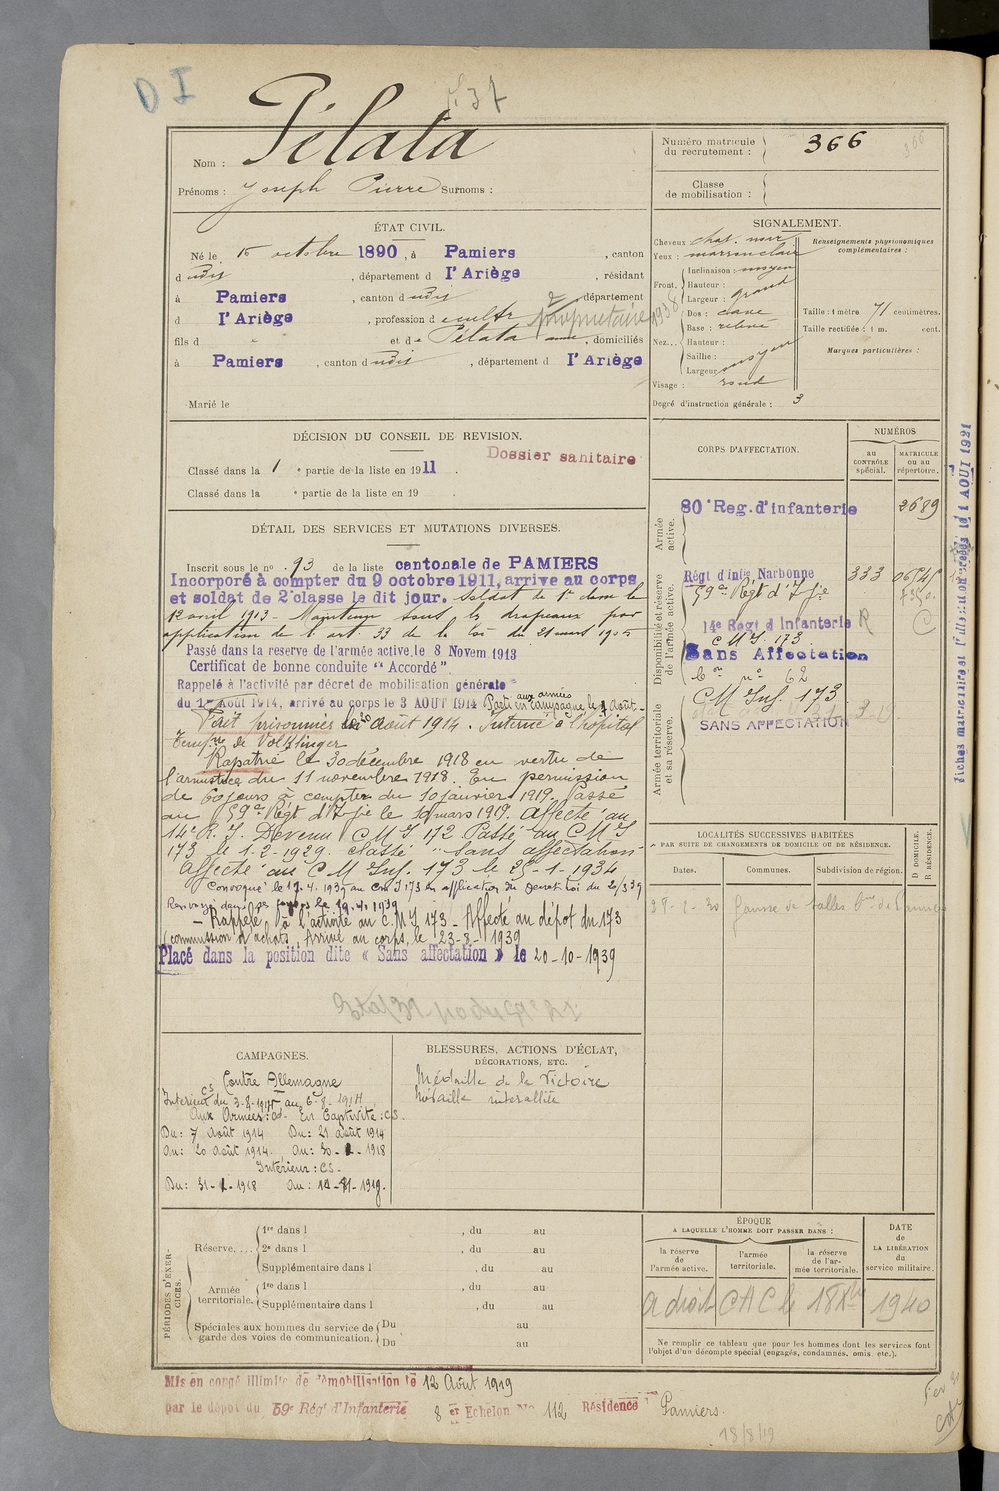 D I
37
Nom : Pélata
Prénoms : Joseph Pierre Surnoms :
Numéro matricule du recrutement : 366
366
Classe de mobilisation :
ÉTAT CIVIL.
Né le 15 octobre 1890, à Pamiers, canton
d udit, département d l'Ariège, résidant
à Pamiers, canton d udit, département
d l'Ariège, profession de cultr propriétaire 1938
fils d et de Pélata Anne, domiciliés
à Pamiers, canton d udit, département d l'Ariège
Marié le
SIGNALEMENT.
Cheveux chat. noir
Yeux : marron clair
Front. Inclinaison : moyen
Hauteur :
Largeur : grand
Nez... Dos : cave
Base : relevé
Hauteur :
Saillie :
Largeur moyen
Visage : rond
Degré d'instruction générale : 3
Renseignements physionomiques complémentaires :
Taille : 1 mètre 71 centimètres.
Taille rectifiée : 1 m. cent.
Marques particulières :
DÉCISION DU CONSEIL DE REVISION.
Dossier sanitaire
Classé dans la 1 e partie de la liste en 1911.
Classé dans la e partie de la liste en 19 .
DÉTAIL DES SERVICES ET MUTATIONS DIVERSES.
Inscrit sous le no 93 de la liste cantonale de PAMIERS
Incorporé à compter du 9 octobre 1911, arrive au corps
et soldat de 2e classe le dit jour. Soldat de 1e classe le
12 avril 1913 - Maintenu sous les drapeaux par
application de l'art. 33 de la loi du 21 mars 1905
Passé dans la reserve de l'armée active, le 8 Novem. 1913
Certificat de bonne conduite "Accordé"
Rappelé à l'activité par décret de mobilisation générale
du 1er Août 1914, arrivé au corps le 3 AOUT 1914 Parti aux armées en campagne le 7 août.
Fait prisonnier le 20 août 1914. Interné à l'hôpital
de Volklinger
Rapatrié le 30 décembre 1918 en vertu de
l'armistice du 11 novembre 1918. En permission
de 60 jours à compter du 10 janvier 1919. Passé
au 59e Régt d'Ie le 10 mars 1919. Affecté au
14e R. I. Devenu C M I 172 Passé au C M I
173 le 1-2-1929. classé "Sans affectation"
Affecté au C M Inf. 173 le 25-1-1934
Convoqué le 17.4.1939 au CMI 173 en application du Décret Loi du 20/3/39
Renvoyé dans ses foyers le 19.4.1939
- Rappelé à l'activité au C.M.I 173 - Affecté au dépôt du 173
(commission d'achats. Arrivé au corps, le 23-8-1939
Placé dans la position dite « Sans affectation » le 20-10-1939
CORPS D'AFFECTATION.
NUMÉROS
au CONTRÔLE spécial.
MATRICULE ou au répertoire.
Armée active.
80e Reg. d'infanterie 2689
Disponibilité et réserve de l'armée active.
Régt d'infie Narbonne 333
59e Régt d'Ie
14e Régt d'Infanterie R C
C M I. 173
Sans Affectation
no 62
Armée territoriale et sa réserve.
C M Inf. 173
SANS AFFECTATION
Fiches matriculaires
1 AOUT 1921
LOCALITÉS SUCCESSIVES HABITÉES
PAR SUITE DE CHANGEMENTS DE DOMICILE OU DE RÉSIDENCE.
Dates. Communes. Subdivision de région. D DOMICILE. R RÉSIDENCE.
CAMPAGNES.
Contre Allemagne
Intérieur CS du 3-8-1914 au 6-8-1914
Aux Armées : CD. En Captivité : CS.
Du : 7 Août 1914 Du : 21 août 1914
Au : 20 août 1914. Au : 30-1-1918
Intérieur : CS.
Du : 31-1-1918
BLESSURES, ACTIONS D'ÉCLAT,
DÉCORATIONS, ETC.
Médaille de la Victoire
Médaille interalliée
PÉRIODES D'EXERCICES.
Réserve, ... 1re dans l , du au
2e dans l , du au
Supplémentaire dans l , du au
Armée territoriale. 1re dans l , du au
Supplémentaire dans l , du au
Spéciales aux hommes du service de garde des voies de communication. Du au
Du au
ÉPOQUE
A LAQUELLE L'HOMME DOIT PASSER DANS :
la réserve de l'armée active.
l'armée territoriale.
la réserve de l'armée territoriale.
DATE de LA LIBÉRATION du service militaire.
a droit CAC le 18 Xbre 1940
Ne remplir ce tableau que pour les hommes dont les services font
l'objet d'un décompte spécial (engagés, condamnés, omis, etc.).
Mis en congé illimité de démobilisation le 12 Août 1919
par le dépot du 59e Régt d'Infanterie 8 er Echelon No 112 Résidence Pamiers.
18/8/19